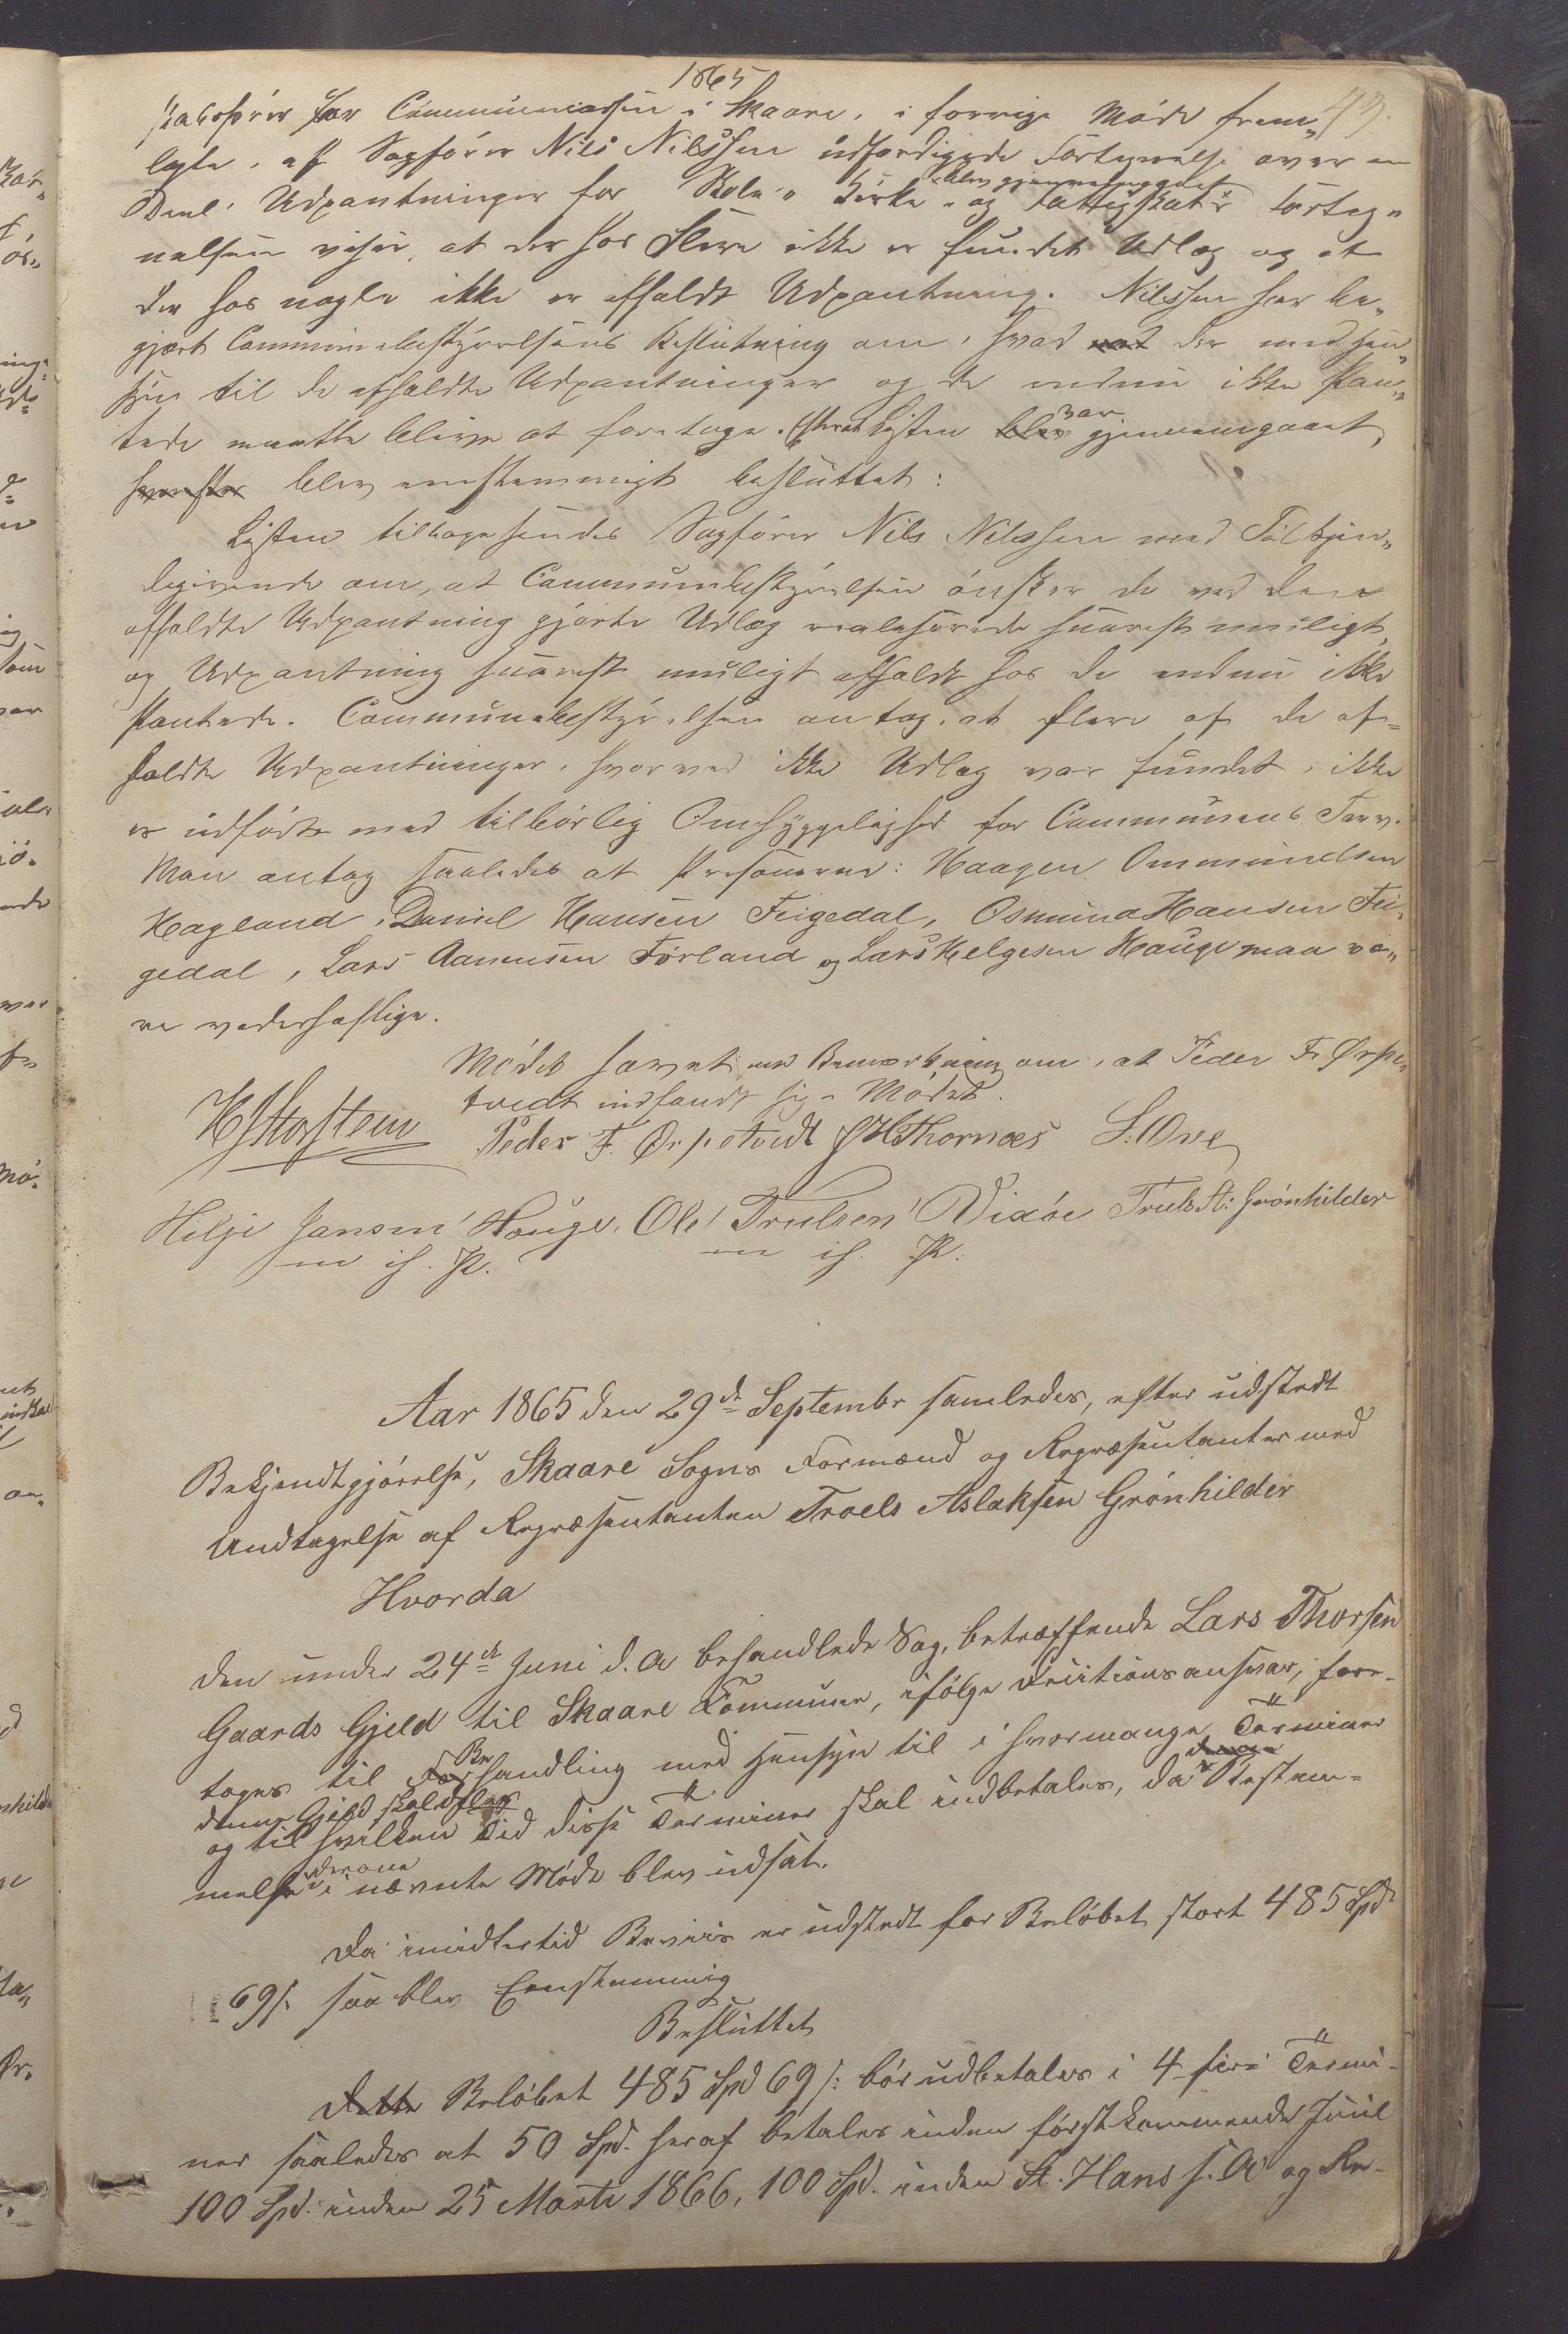 1865
43.
for Communecassen i Skaare, i forrige Møde frem„
lagte, af Sagfører Nils Nilssen udfærdigede Fortegnelse over en
Deel Udpantninger for Skole„ Kirke„ og Fattigskat blev gjennemgaaet Forteg„
nelsen viser, at der hos Flere ikke er fundet Udlæg og at
der hos nogle ikke er afholdt Udpantning. Nilssen har be„
gjært Communebestyrelsens Beslutning om, hvad der med Hen„
syn til de afholdte Udpantninger og de endnu ikke Pan„
tede maatte blive at foretage. Efterat Listen blev var gjennemgaaet,
hvorefter blev eenstemmigt besluttet:
Listen tilbagesendes Sagfører Nils Nilssen med Tilkjen„
degivende om, at Communebestyrelsen ønsker de ved den
afholdte Udpantning gjorte Udlæg realiserede snarest muligt,
og Udpantning snarest muligt afholdt hos de endnu ikke
Pantede. Communebestyrelsen antog, at flere af de af=
holdte Udpantninger, hvorved ikke Udlæg var fundet, ikke
er udførte med tilbørlig Omhyggelighed for Communens Tarv.
Man antog saaledes at Personerne: Haagen Ommundsen
Hagland, Daniel Hansen Feigedal, Osmund Hansen Fei„
gedal, Lars Aamundsen Førland og Lars Helgesen Hauge maa væ„
re vederhæftige.
Mødet hævet med Bemærkning om, at Peder F. Ørpe„
tvedt indfandt sig i Mødet.
H Storsteen Peder F. Ørpetvedt S H Thornæs S: Ove
Hilje Jansen Hauge, Ole Trulsen Vixøe Truls A: Grønhilder
m if. P. m if. P.
Aar 1865 den 29de Septembr samledes, efter udstedt
Bekjendtgjørelse, Skaare Sogns Formænd og Repræsentanter med
Undtagelse af Repræsentanten Troels Aslaksen Grønhilder
Hvorda
den under 24de Juni d. A behandlede Sag, betræffende Lars Thorsen
Gaards Gjeld til Skaare Kommune, ifølge Kautionsansvar, fore-
toges til For Behandling med Hensyn til i hvormange Terminer
denne Gjeld skal
og til hvilken Tid disse Terminer skal indbetales, da denne Bestem=
melse derom i nævnte Møde blev udsat.
Da imidlertid Beviis er udstedt for Beløbet stort 485 Spd
69 s. saa blev Eenstemmig
Besluttet
Dette Beløbet 485 Spd 69 s: bør udbetales i 4 fire Termi-
ner saaledes at 50 Spd. heraf betales inden førstkommende Juul
100 Spd. inden 25 Marts 1866, 100 Spd. inden St. Hans s. A og Re-